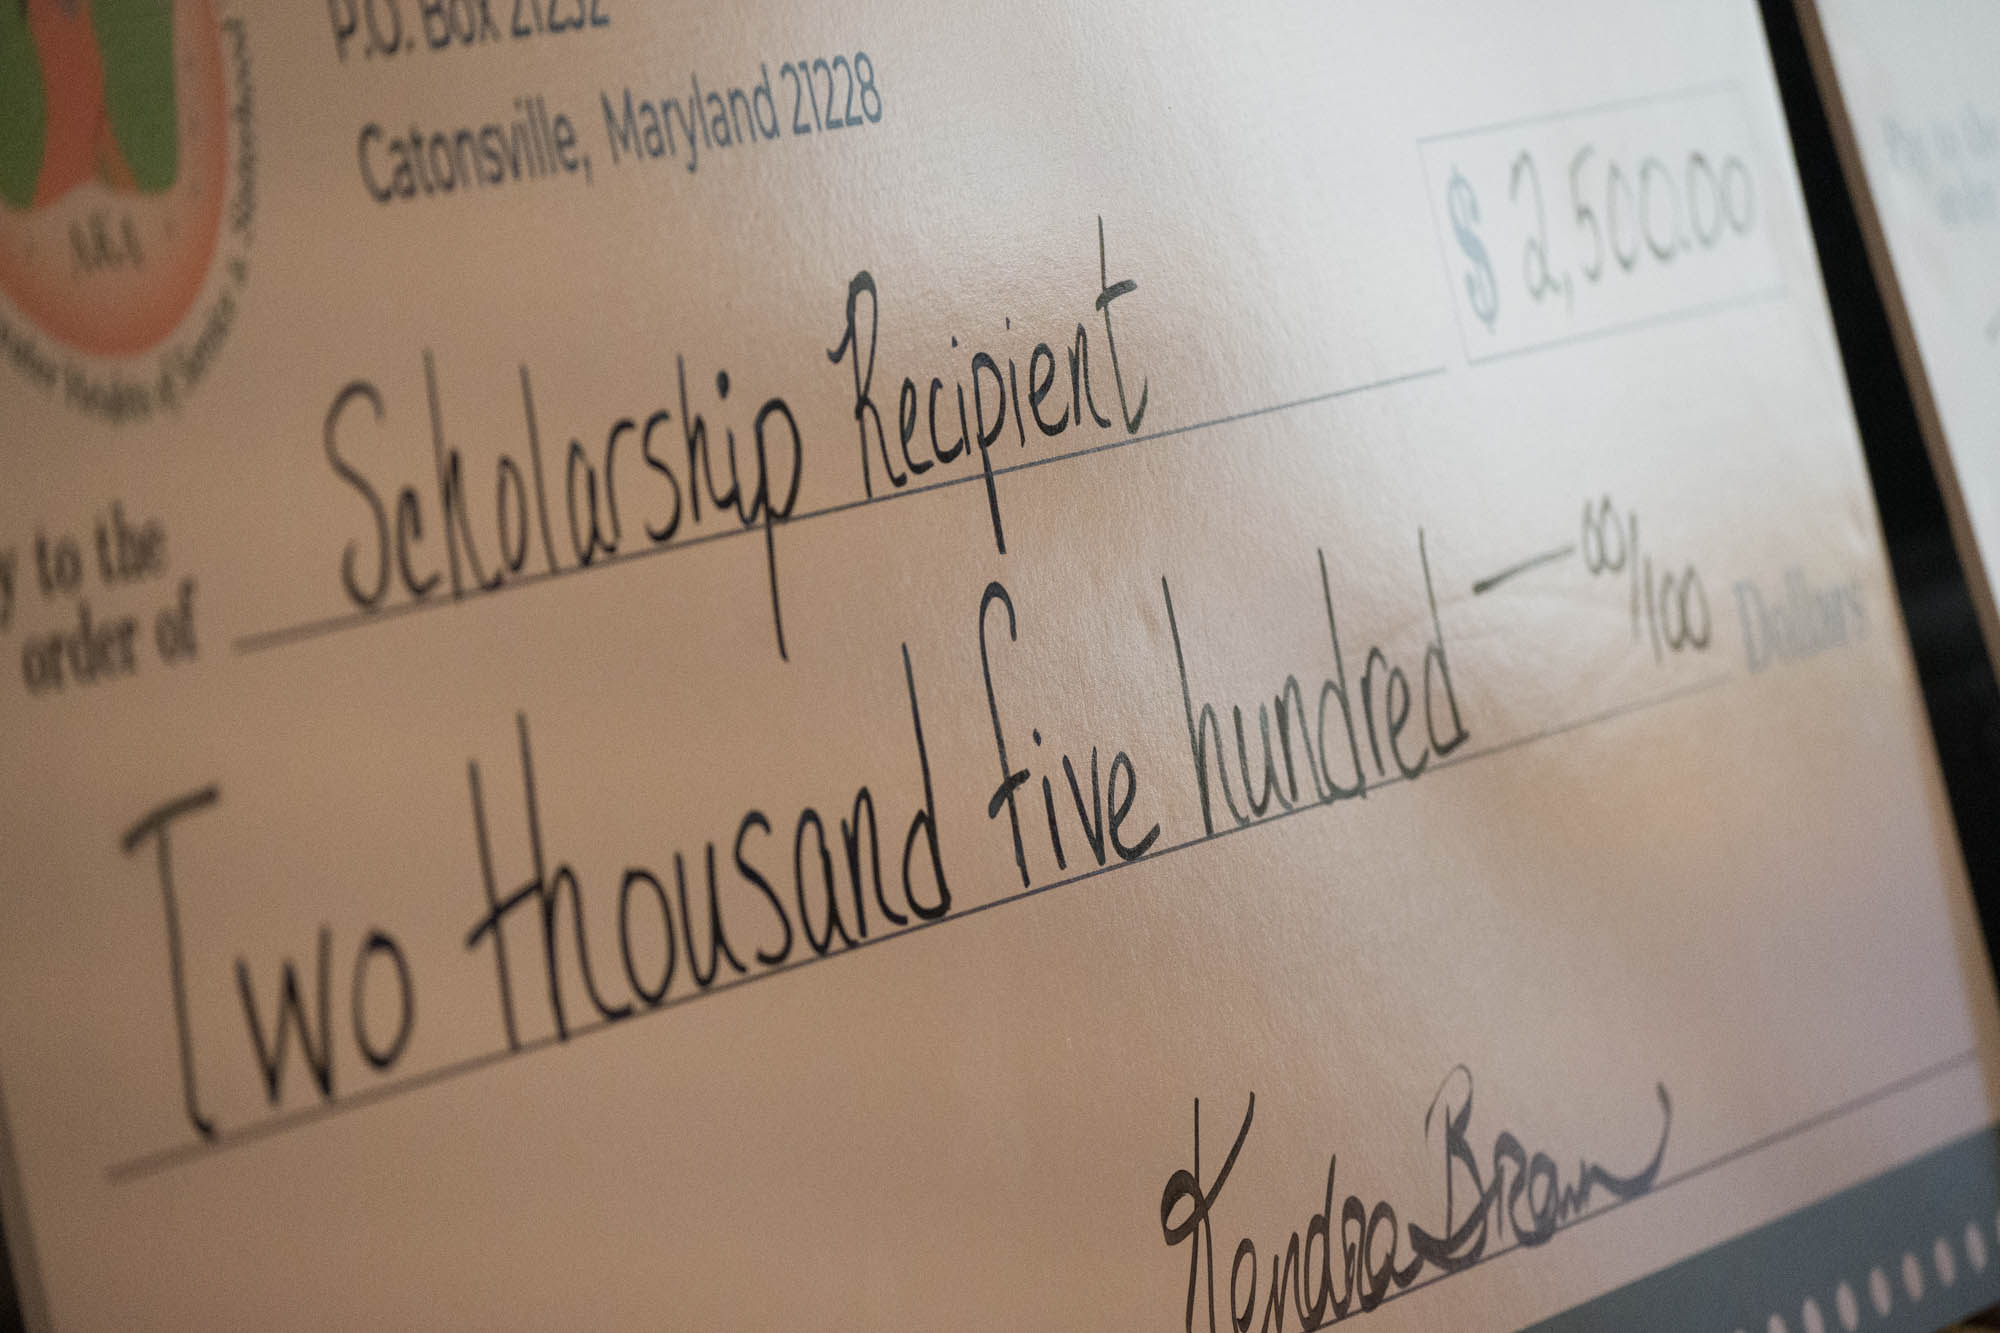 P.O. Box 21232
Catonsville, Maryland 21228
AKA
of Service &
$ 2,500.00
y to the
order of
Scholarship Recipient
Two thousand five hundred — 00/100 Dollars
Kendra Brown